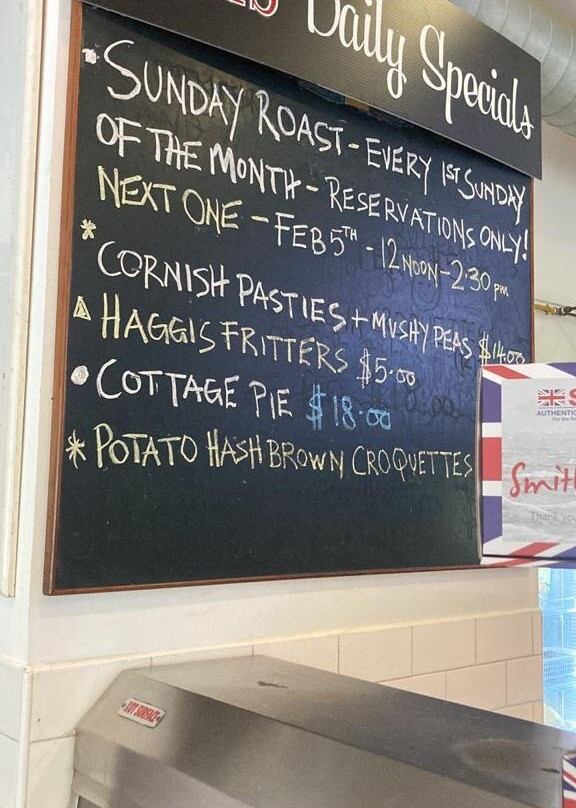 Daily Specials
* SUNDAY ROAST - EVERY 1ST SUNDAY
OF THE MONTH - RESERVATIONS ONLY!
NEXT ONE - FEB 5TH - 12 NOON - 2:30 pm
* CORNISH PASTIES + MUSHY PEAS $14.00
HAGGIS FRITTERS $5.00
• COTTAGE PIE $18.00
* POTATO HASH BROWN CROQUETTES
AUTHENTIC
Smith
Thank you
HOT SURFACE